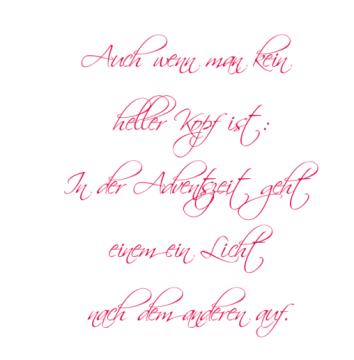 Auch wenn man kein
heller Kopf ist :
In der Adventszeit geht
einem ein Licht
nach dem anderen auf.